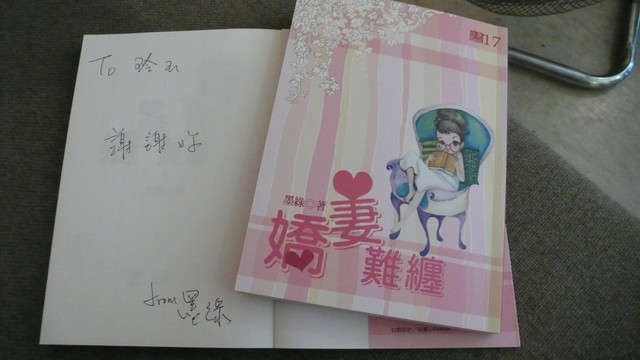 To 玲玉
謝謝妳
from 墨綠
17
墨綠◎著
嬌妻
難纏